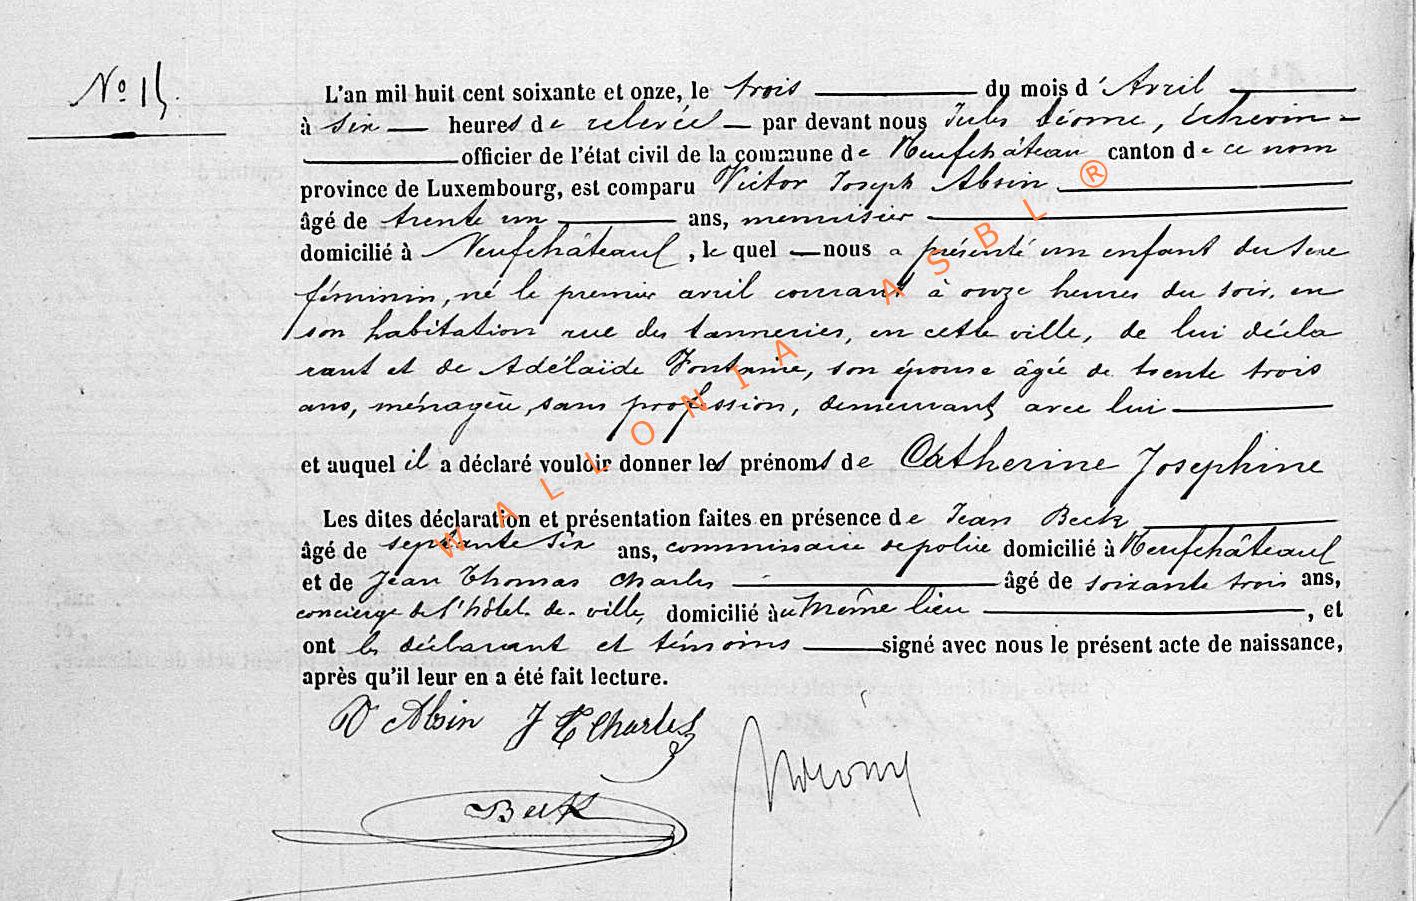 N° 15.
L'an mil huit cent soixante et onze, le trois du mois d'Avril
à six heures de relevées par devant nous Jules Léonne, Echevin
officier de l'état civil de la commune de Neufchâteau canton de ce nom
province de Luxembourg, est comparu Victor Joseph Absin
âgé de trente un ans, menuisier
domicilié à Neufchâteau, le quel nous a présenté un enfant du sexe
féminin, né le premier avril courant à onze heures du soir, en
son habitation rue des tanneries, en cette ville, de lui décla
rant et de Adélaïde Fontaine, son épouse âgée de trente trois
ans, ménagère, sans profession, demeurant avec lui
et auquel il a déclaré vouloir donner les prénoms de Catherine Josephine
Les dites déclaration et présentation faites en présence de Jean Beck
âgé de septante six ans, commissaire de police domicilié à Neufchâteau
et de Jean Thomas Charles âgé de soixante trois ans,
concierge de l'hôtel-de-ville, domicilié au même lieu, et
ont les déclarant et témoins signé avec nous le présent acte de naissance,
après qu'il leur en a été fait lecture.
V Absin J T Charles
Beck
WALLONIA ASBL ®